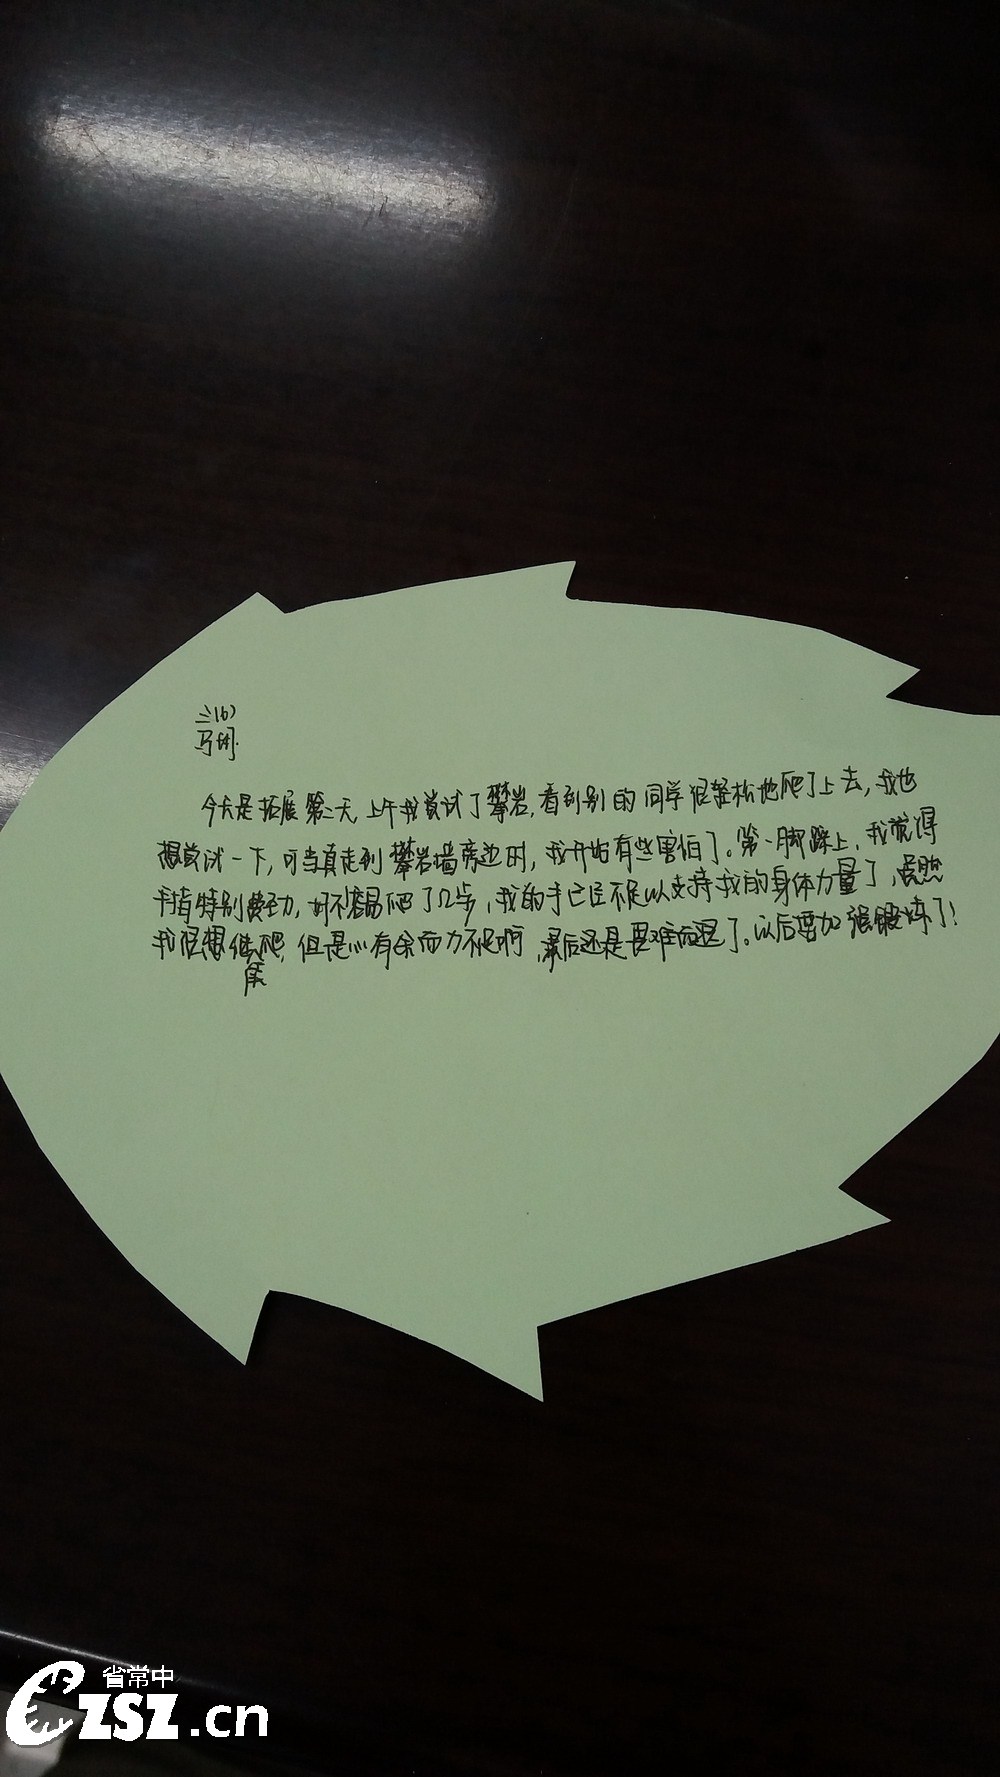 三(16)
马
今天是拓展第二天,上午我尝试了攀岩,看到别的同学很轻松地爬了上去,我也
想尝试一下,可当真走到攀岩墙旁边时,我开始有些害怕了。第一脚踩上,我觉得
特别费劲,好不容易爬了几步,我的手已经不足以支持我的身体力量了,虽然
我很想继续爬,但是心有余而力不足啊,最后还是畏难而退了。以后要加强锻炼了!
省常中
CZSZ.cn